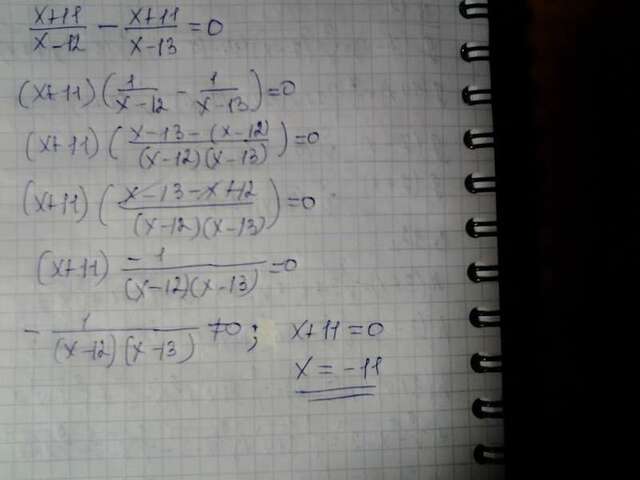 (x+11)/(x-12) - (x+11)/(x-13) = 0
(x+11)(1/(x-12) - 1/(x-13)) = 0
(x+11)((x-13-(x-12))/((x-12)(x-13))) = 0
(x+11)((x-13-x+12)/((x-12)(x-13))) = 0
(x+11) -1/((x-12)(x-13)) = 0
- 1/((x-12)(x-13)) ≠ 0; x+11 = 0
x = -11